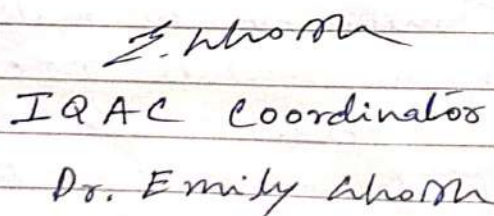 E. Ghosh
IQAC Coordinator
Dr. Emily Ghosh